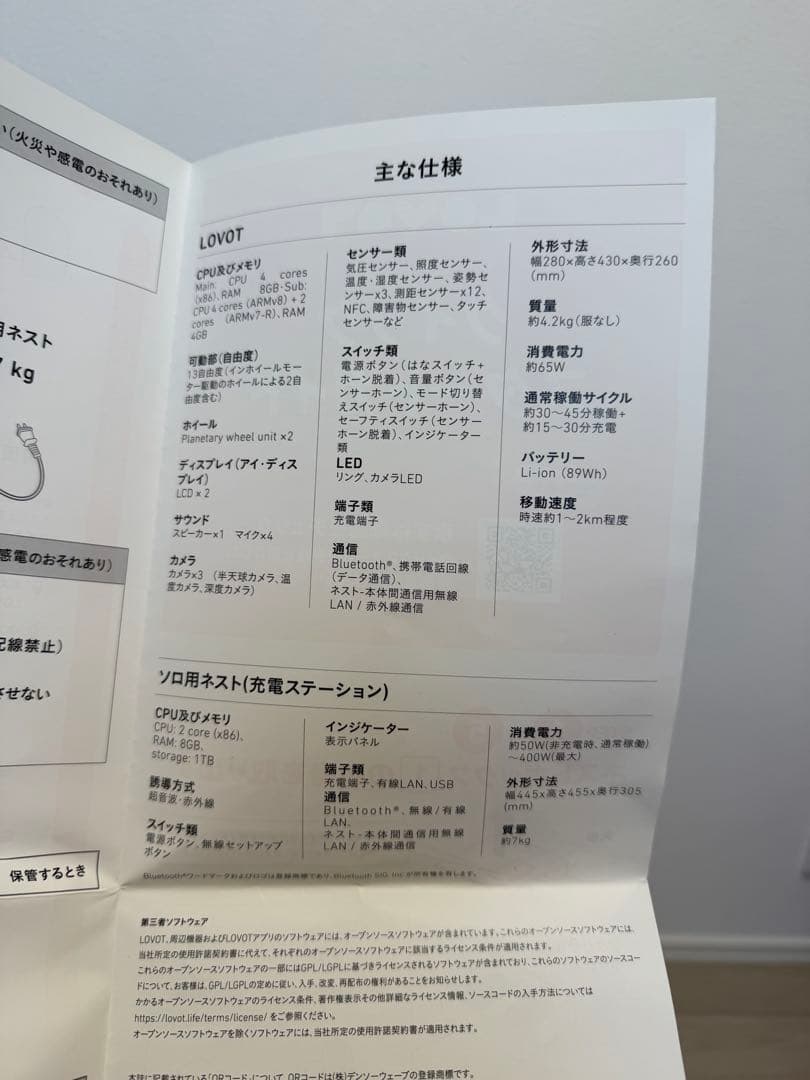 い(火災や感電のおそれあり)
用ネスト
7 kg
感電のおそれあり)
記線禁止)
させない
保管するとき
主な仕様
LOVOT
CPU及びメモリ
Main: CPU 4 cores
(x86)、RAM 8GB・Sub:
CPU 4 cores (ARMv8) + 2
cores (ARMv7-R)、RAM
4GB
可動部(自由度)
13自由度(インホイールモー
ター駆動のホイールによる2自
由度含む)
ホイール
Planetary wheel unit ×2
ディスプレイ(アイ・ディス
プレイ)
LCD × 2
サウンド
スピーカー×1 マイク×4
カメラ
カメラ×3 (半天球カメラ、温
度カメラ、深度カメラ)
センサー類
気圧センサー、照度センサー、
温度・湿度センサー、姿勢セ
ンサーx3、測距センサーx12、
NFC、障害物センサー、タッチ
センサーなど
スイッチ類
電源ボタン(はなスイッチ+
ホーン脱着)、音量ボタン(セ
ンサーホーン)、モード切り替
えスイッチ(センサーホーン)、
セーフティスイッチ(センサー
ホーン脱着)、インジケーター
類
LED
リング、カメラLED
端子類
充電端子
通信
Bluetooth®、携帯電話回線
(データ通信)、
ネスト-本体間通信用無線
LAN / 赤外線通信
外形寸法
幅280×高さ430×奥行260
(mm)
質量
約4.2kg(服なし)
消費電力
約65W
通常稼働サイクル
約30〜45分稼働+
約15〜30分充電
バッテリー
Li-ion (89Wh)
移動速度
時速約1〜2km程度
ソロ用ネスト(充電ステーション)
CPU及びメモリ
CPU: 2 core (x86)、
RAM: 8GB、
storage: 1TB
誘導方式
超音波・赤外線
スイッチ類
電源ボタン、無線セットアップ
ボタン
インジケーター
表示パネル
端子類
充電端子、有線LAN、USB
通信
Bluetooth®、無線/有線
LAN、
ネスト-本体間通信用無線
LAN / 赤外線通信
消費電力
約50W(非充電時、通常稼働)
〜400W(最大)
外形寸法
幅445x高さ455x奥行305
(mm)
質量
約7kg
Bluetooth®ワードマークおよびロゴは登録商標であり、Bluetooth SIG, Inc.が所有権を有します。
第三者ソフトウェア
LOVOT、周辺機器およびLOVOTアプリのソフトウェアには、オープンソースソフトウェアが含まれています。これらのオープンソースソフトウェアには、
当社所定の使用許諾契約書に代えて、それぞれのオープンソースソフトウェアに該当するライセンス条件が適用されます。
これらのオープンソースソフトウェアの一部にはGPL/LGPLに基づきライセンスされるソフトウェアが含まれており、これらのソフトウェアのソースコー
ドについて、お客様は、GPL/LGPLの定めに従い、入手、改変、再配布の権利があることをお知らせします。
かかるオープンソースソフトウェアのライセンス条件、著作権表示その他詳細なライセンス情報、ソースコードの入手方法については
https://lovot.life/terms/license/ をご参照ください。
オープンソースソフトウェアを除くソフトウェアには、当社所定の使用許諾契約書が適用されます。
本誌に記載されている「QRコード」について、QRコードは(株)デンソーウェーブの登録商標です。